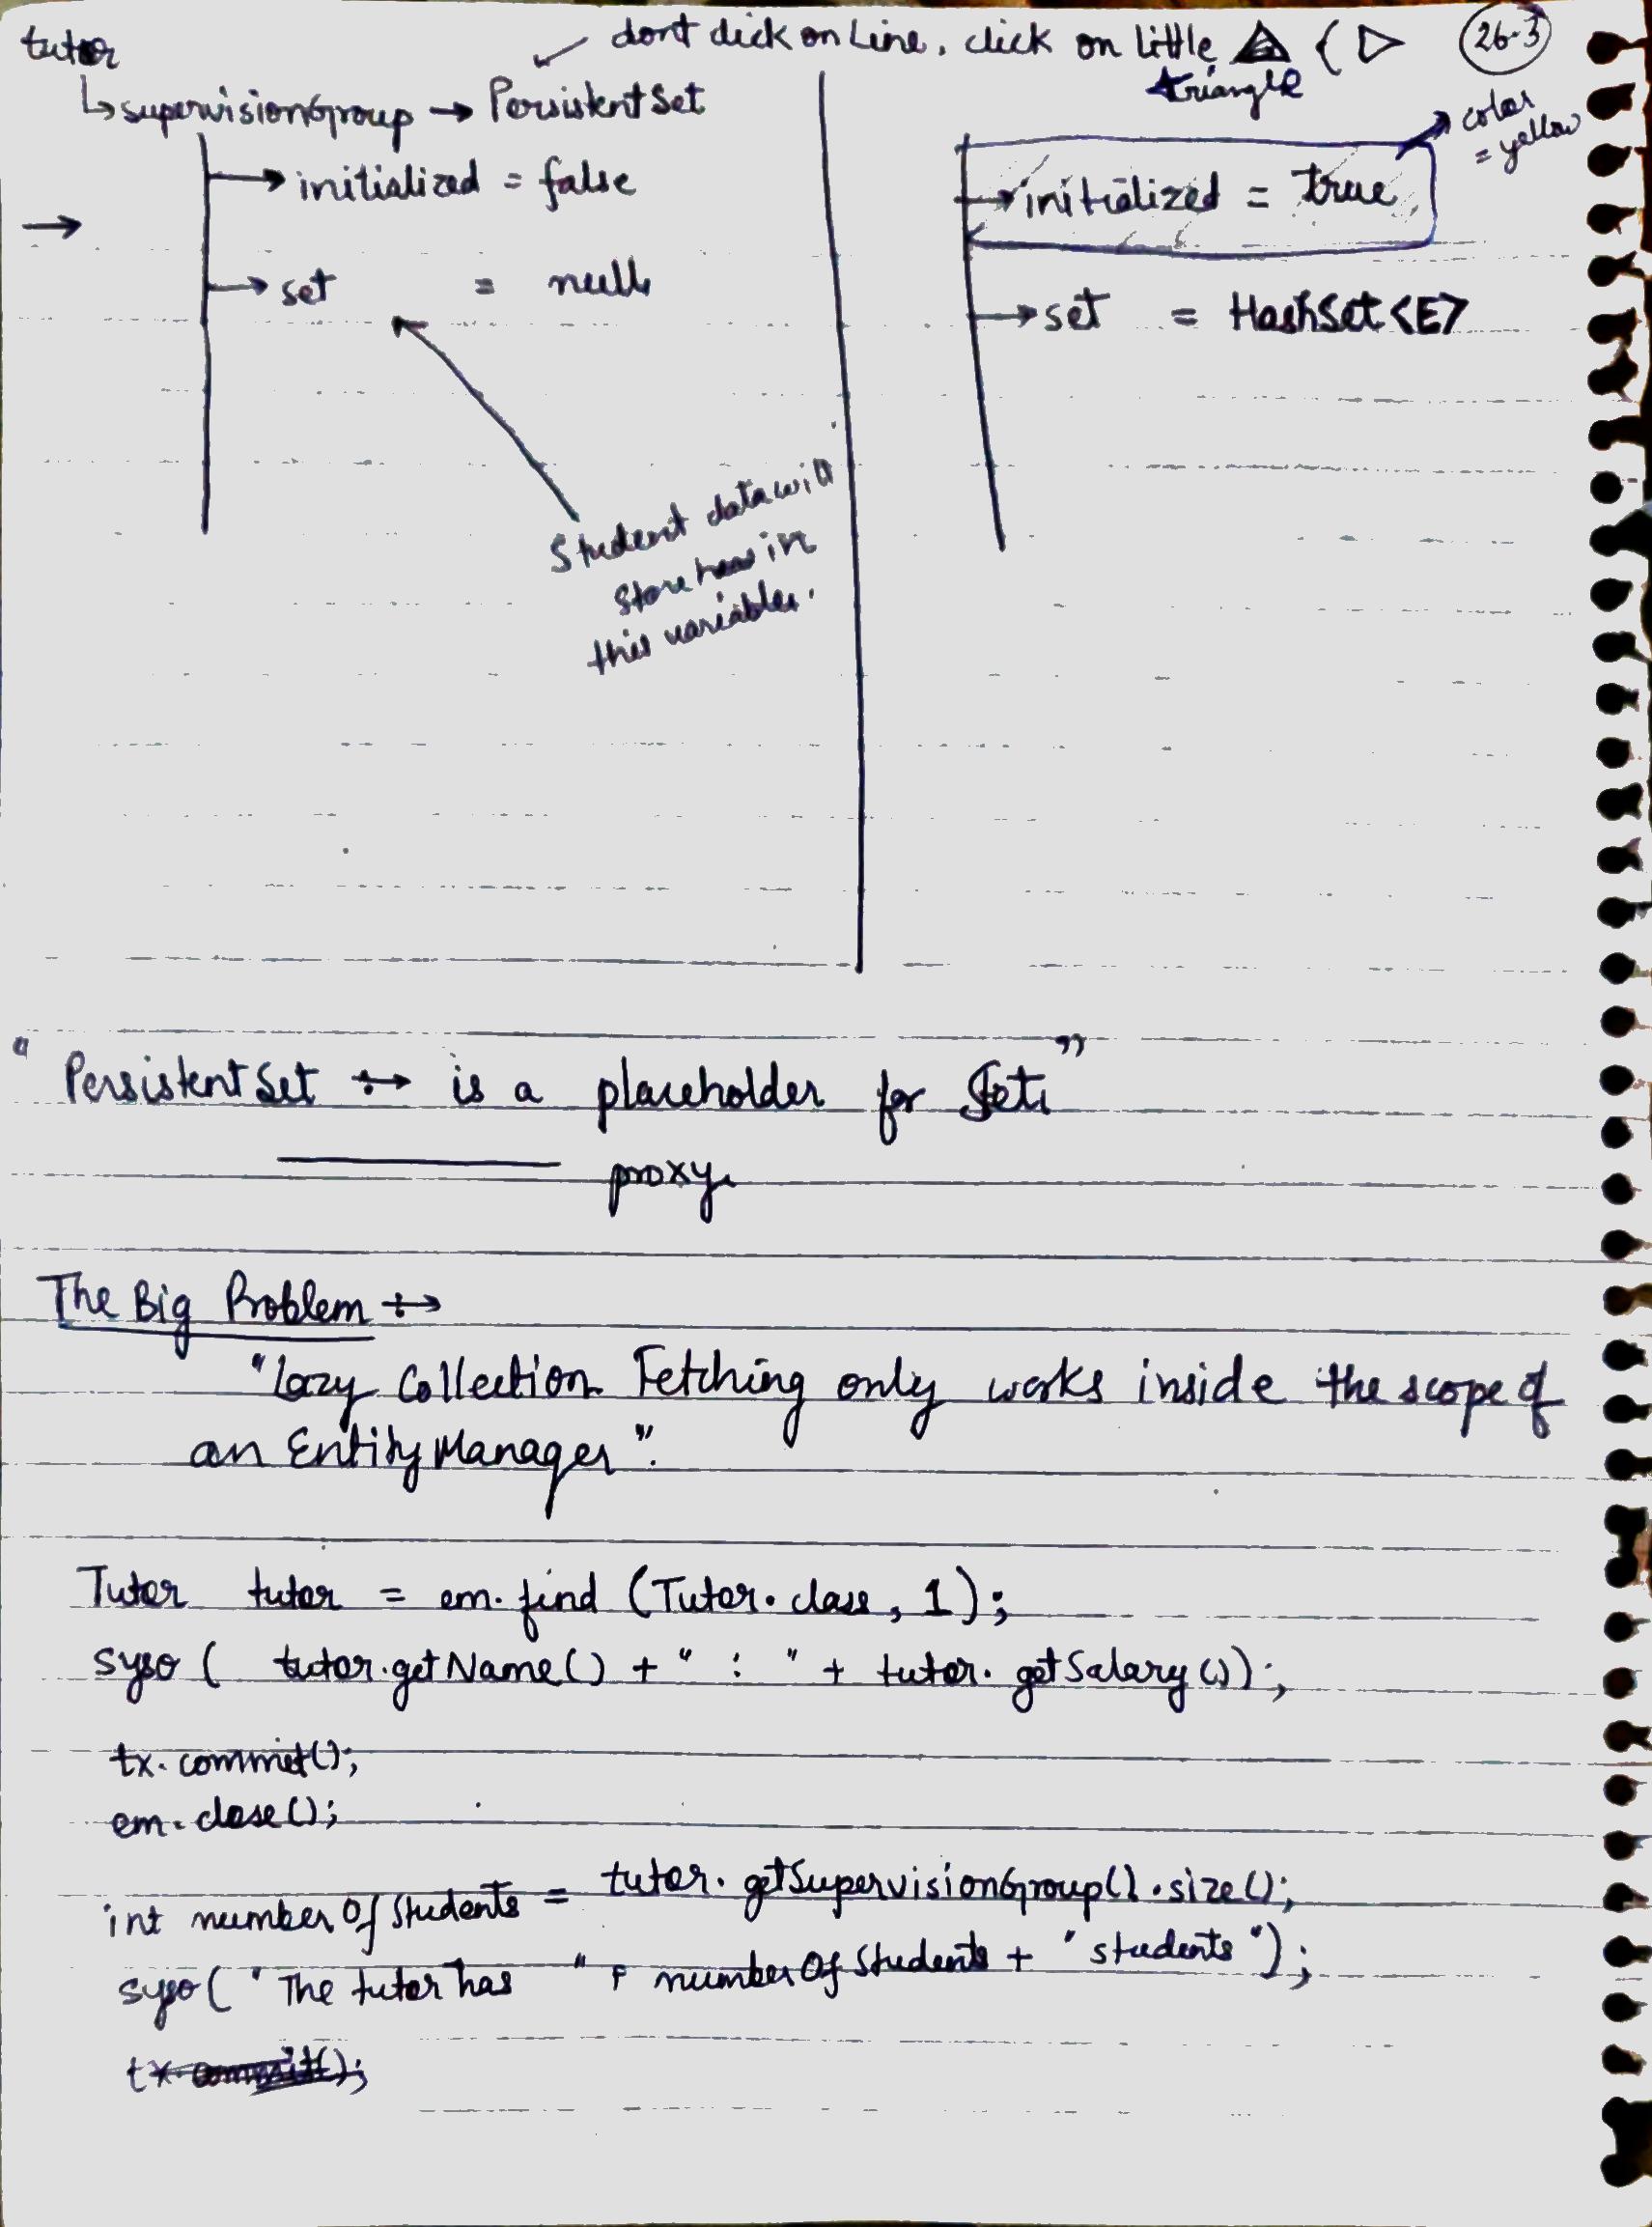 tutor
✓ dont click on Line, click on little △ ( ▷
triangle
26-3
↳ supervisionGroup → PersistentSet
→ initialized = false
→
→ set = null
Student data will
store in
this variable.
color
= yellow
→ initialized = true
→ set = HashSet<E>
" PersistentSet → is a placeholder for Set "
——— proxy
The Big Problem →
"Lazy Collection Fetching only works inside the scope of
an EntityManager".
Tutor tutor = em.find (Tutor.class, 1);
syso ( tutor.getName() + " : " + tutor.getSalary());
tx.commit();
em.close();
int numberOfStudents = tutor.getSupervisionGroup().size();
syso( "The tutor has " + numberOfStudents + "students");
tx.commit();